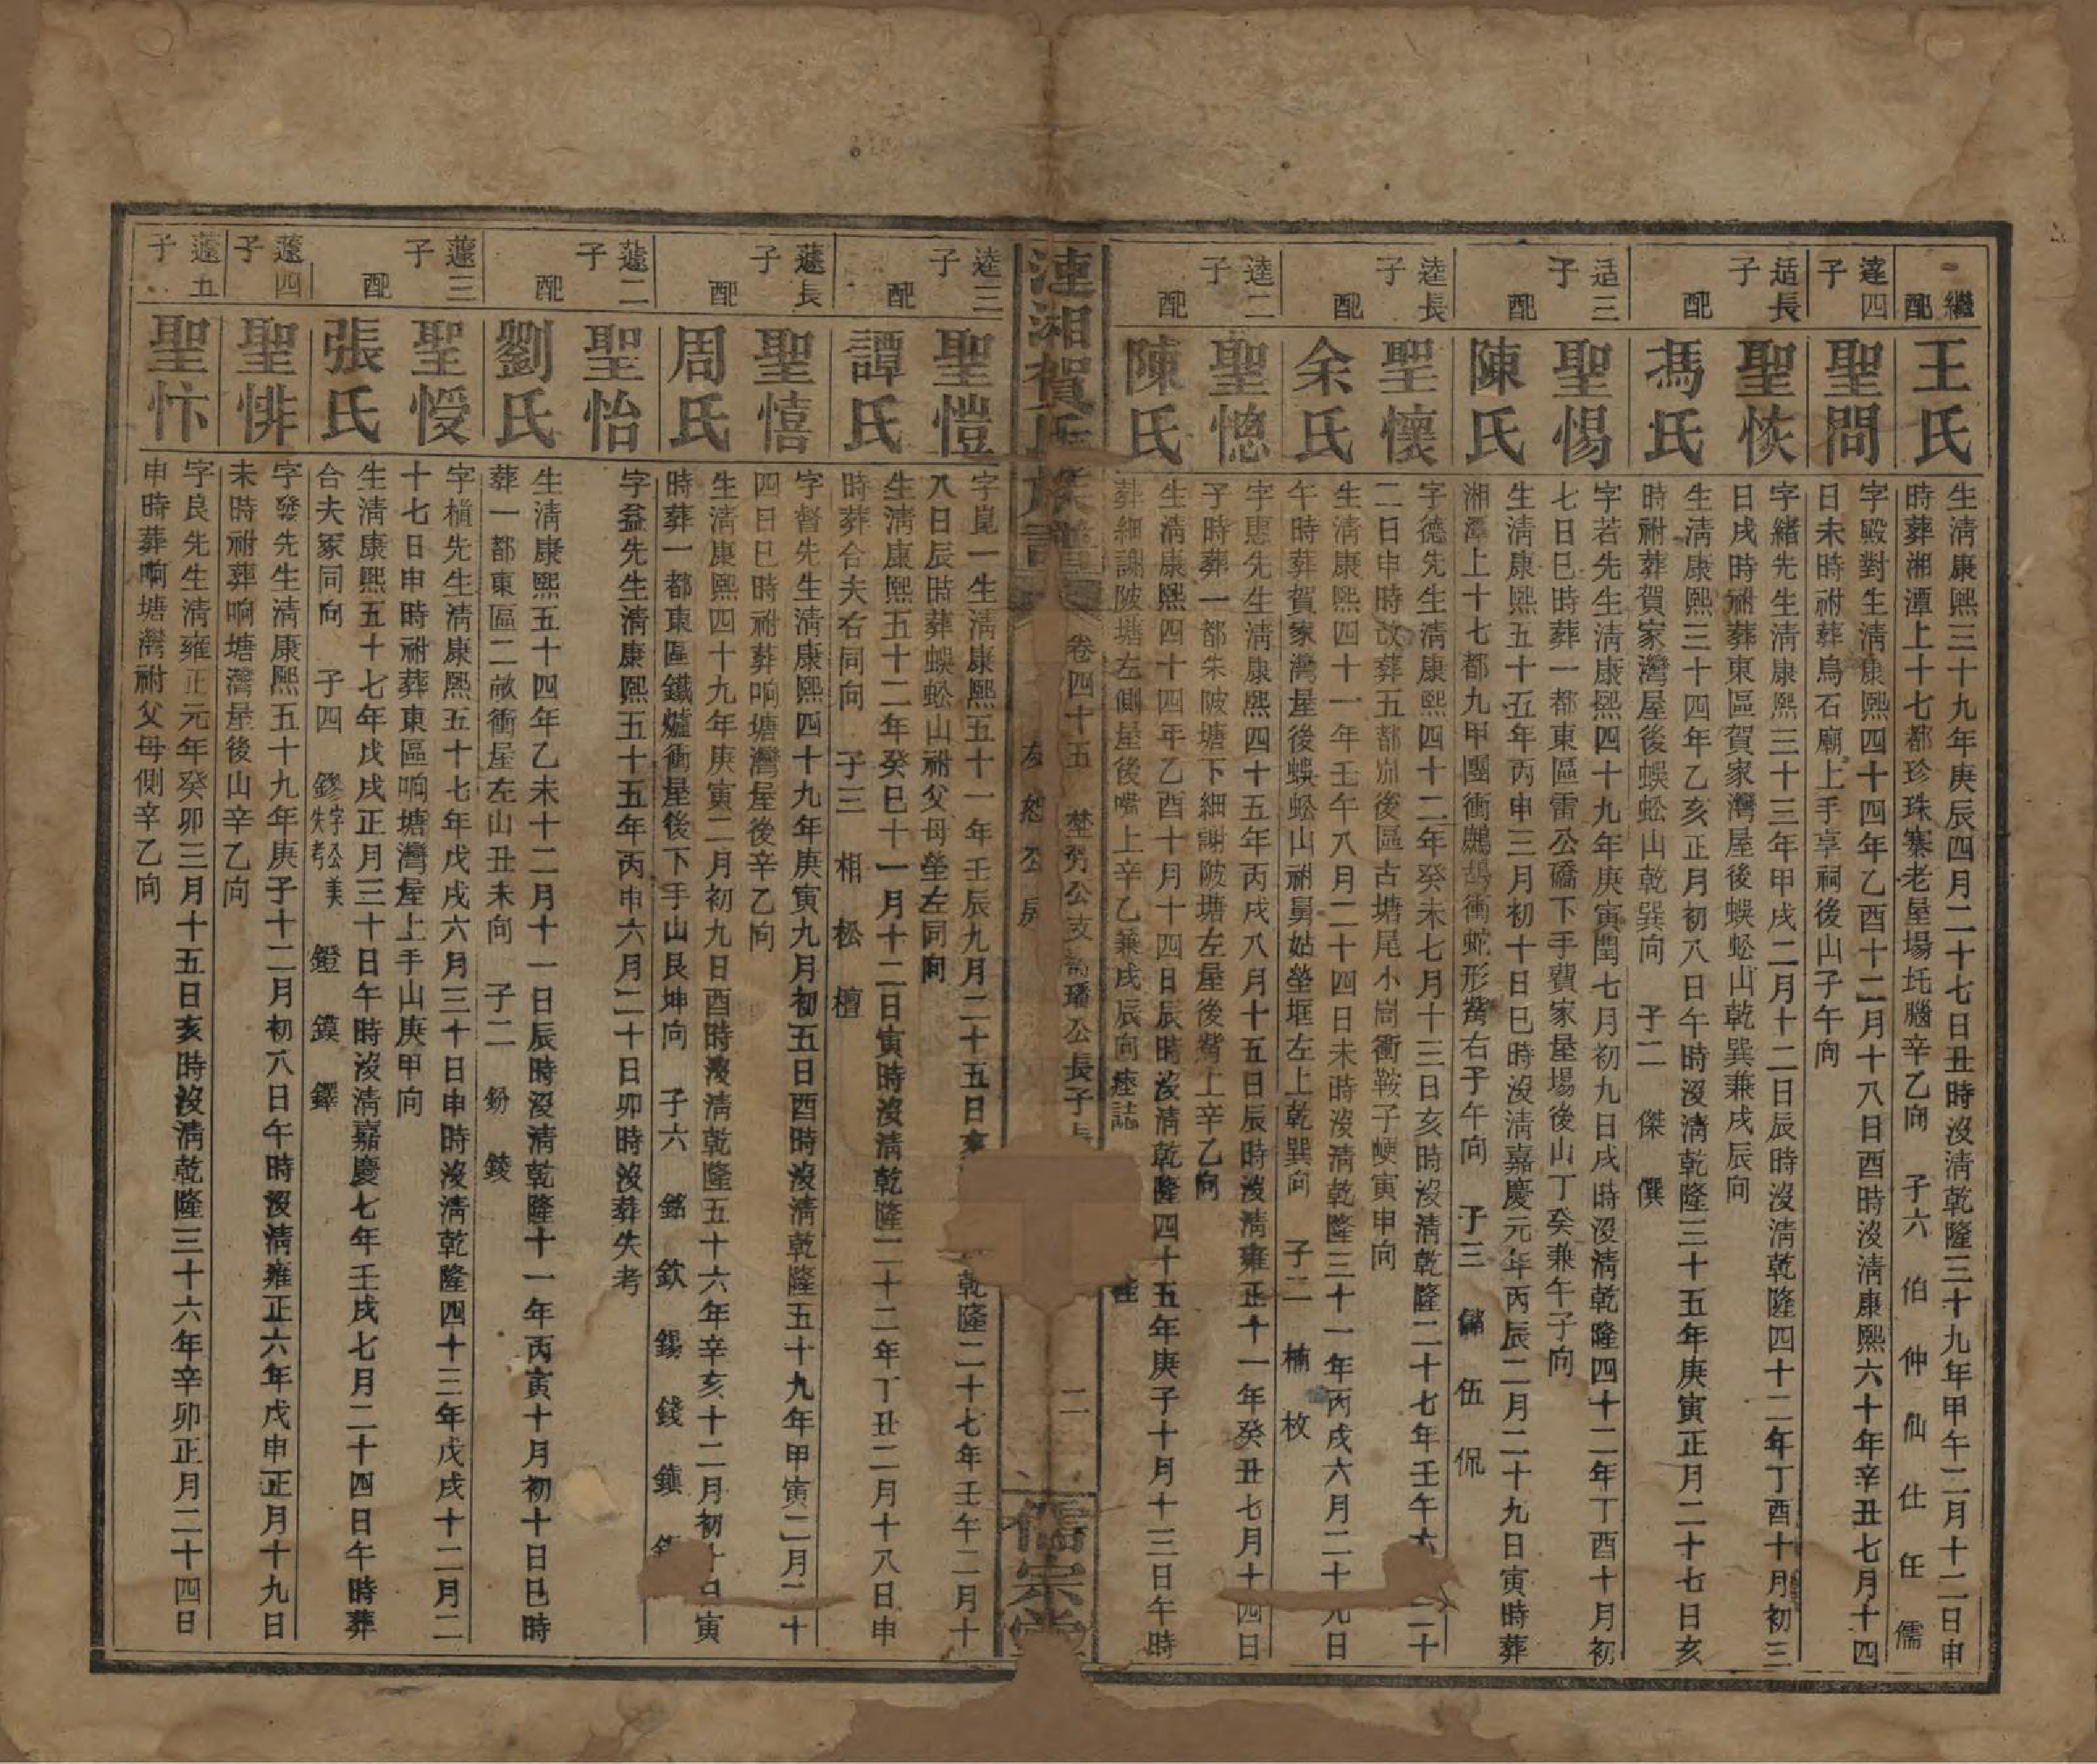 繼配
王氏
生清康熙三十九年庚辰四月二十七日丑時沒清乾隆三十九年甲午二月十二日申
時葬湘潭上十七都珍珠寨老屋場坵腦辛乙向 子六 伯 仲 仙 仕 任 儒
逵四子
聖問
字毆對生清康熙四十四年乙酉十二月十八日酉時沒清康熙六十年辛丑七月十四
日未時祔葬烏石廟上手享祠後山子午向
适長子
聖恢
字緒先生清康熙三十三年甲戌二月十二日辰時沒清乾隆四十二年丁酉十月初三
日戌時祔葬東區賀家灣屋後蜈蚣山乾巽兼戌辰向
配
馮氏
生清康熙三十四年乙亥正月初八日午時沒清乾隆三十五年庚寅正月二十七日亥
時祔葬賀家灣屋後蜈蚣山乾巽向 子二 傑 僎
适三子
聖惕
字若先生清康熙四十九年庚寅閏七月初九日戌時沒清乾隆四十二年丁酉十月初
七日巳時葬一都東區雷公礄下手費家屋場後山丁癸兼午子向
配
陳氏
生清康熙五十五年丙申三月初十日巳時沒清嘉慶元年丙辰二月二十九日寅時葬
湘潭上十七都九甲團衝鷓鴣衝蛇形觜右子午向 子三 儞 伍 侃
逵長子
聖懷
字德先生清康熙四十二年癸未七月十三日亥時沒清乾隆二十七年壬午六二十
二日申時改葬五都後區古塘尾小崗衝鞍子埂寅申向
配
余氏
生清康熙四十一年壬午八月二十四日未時沒清乾隆三十一年丙戌六月二十九日
午時葬賀家灣屋後蜈蚣山祔舅姑塋框左上乾巽向 子二 楠 枚
逵二子
聖憁
字惠先生清康熙四十五年丙戌八月十五日辰時沒清雍正十一年癸丑七月十四日
子時葬一都朱陂塘下細謝陂塘左屋後觜上辛乙向
配
陳氏
生清康熙四十四年乙酉十月十四日辰時沒清乾隆四十五年庚子十月十三日午時
葬細謝陂塘左側屋後嘴上辛乙兼戌辰向塟誌 
漣湘賀氏族譜
卷四十五 公支 璠公長子
友恕公房
二
儒宗堂
逵三子
聖愷
字崑一生清康熙五十一年壬辰九月二十五日亥 乾隆二十七年壬午二月十
八日辰時葬蜈蚣山祔父母塋左同向
配
譚氏
生清康熙五十二年癸巳十一月十二日寅時沒清乾隆二十二年丁丑二月十八日申
時葬合夫右同向 子三 相 松 檀
蘧長子
聖憘
字督先生清康熙四十九年庚寅九月初五日酉時沒清乾隆五十九年甲寅二月二十
四日巳時祔葬响塘灣屋後辛乙向
配
周氏
生清康熙四十九年庚寅二月初九日酉時沒清乾隆五十六年辛亥十二月初十日寅
時葬一都東區鐵爐衝屋後下手山艮坤向 子六 銘 欽 錫 錢 鎮
蘧二子
聖怡
字益先生清康熙五十五年丙申六月二十日卯時沒葬失考
配
劉氏
生清康熙五十四年乙未十二月十一日辰時沒清乾隆十一年丙寅十月初十日巳時
葬一都東區二畝衝屋左山丑未向 子二 鈖 錂
蘧三子
聖慢
字楨先生清康熙五十七年戊戌六月三十日申時沒清乾隆四十三年戊戌十二月二
十七日申時祔葬東區响塘灣屋上手山庚甲向
配
張氏
生清康熙五十七年戊戌正月三十日午時沒清嘉慶七年壬戌七月二十四日午時葬
合夫冢同向 子四 鏐字公美失考 鐙 鏌 鐸
蘧四子
聖悱
字發先生清康熙五十九年庚子十二月初八日午時沒清雍正六年戊申正月十九日
未時祔葬响塘灣屋後山辛乙向
蘧五子
聖忭
字良先生清雍正元年癸卯三月十五日亥時沒清乾隆三十六年辛卯正月二十四日
申時葬响塘灣祔父母側辛乙向